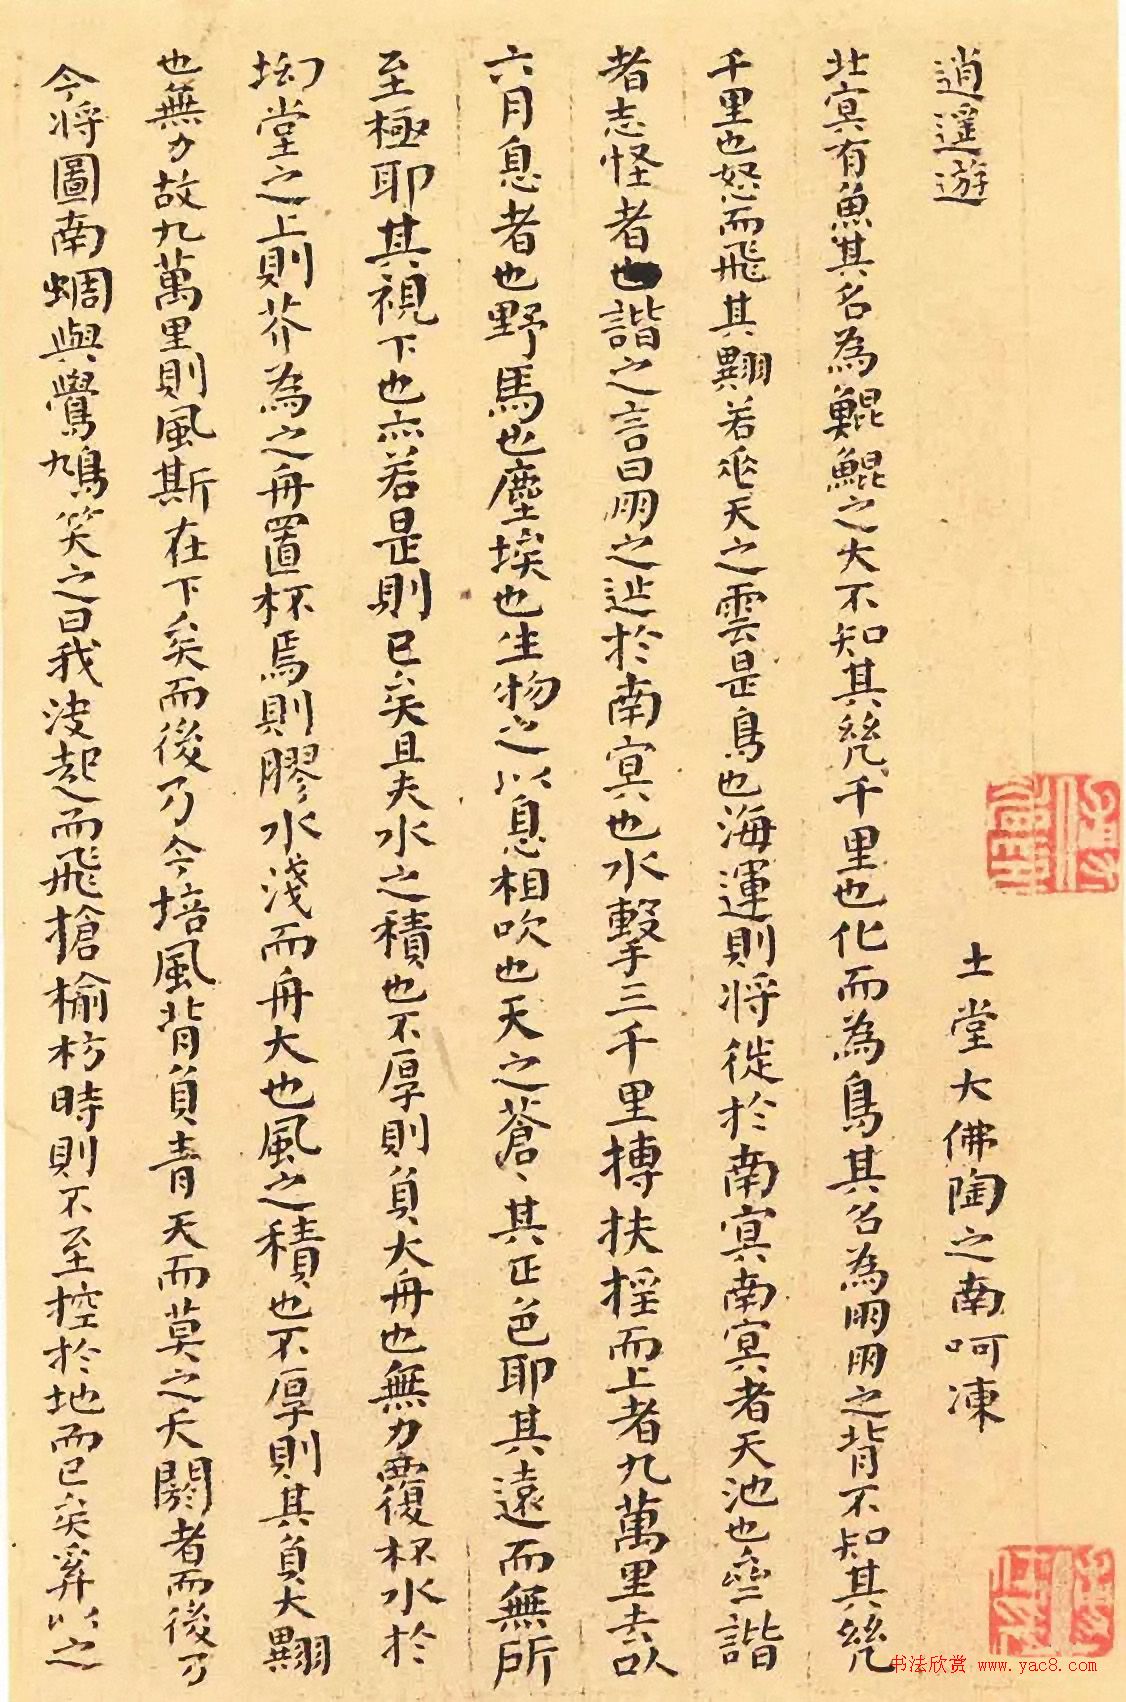 逍遥遊
土堂大佛陶之南呵凍
北㝠有魚其名為鯤鯤之大不知其㡬千里也化而為鳥其名為朋朋之背不知其㡬
千里也怒而飛其翼若垂天之雲是鳥也海運則將徙於南㝠南㝠者天池也齊諧
者志怪者也諧之言曰朋之徙於南㝠也水擊三千里摶扶揺而上者九萬里去以
六月息者也野馬也塵埃也生物之以息相吹也天之蒼〻其正色耶其遠而無所
至極耶其視下也亦若是則已矣且夫水之積也不厚則負大舟也無力覆杯水於
坳堂之上則芥為之舟置杯焉則膠水淺而舟大也風之積也不厚則其負大翼
也無力故九萬里則風斯在下矣而後乃今培風背負青天而莫之夭閼者而後乃
今將圖南蜩與鷽鳩笑之曰我決起而飛搶榆枋時則不至控於地而已矣奚以之
书法欣赏 www.yac8.com